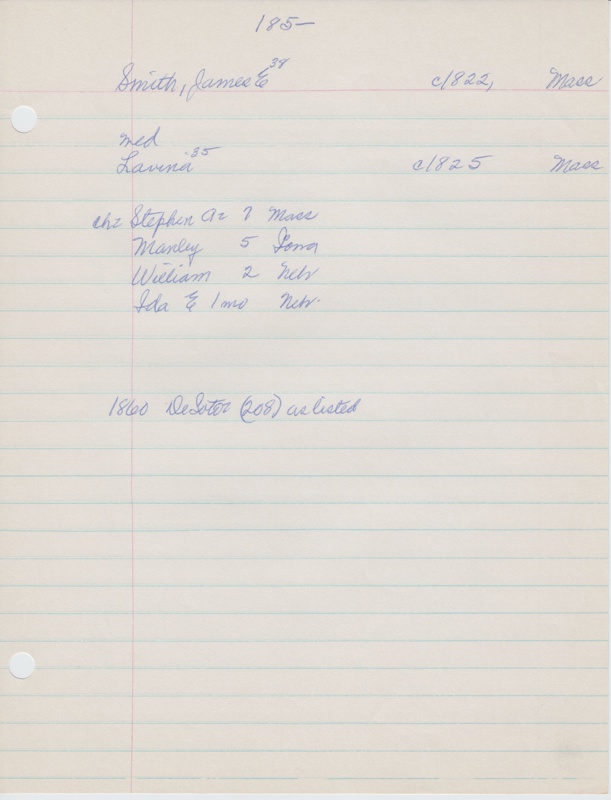 185-
Smith, James E 38 c1822, Mass
med
Lavina 35 c1825 Mass
ch= Stephen A= 7 Mass
Manley 5 Iowa
William 2 Nebr
Ida E 1 mo Nebr.
1860 DeSoto= (208) as listed